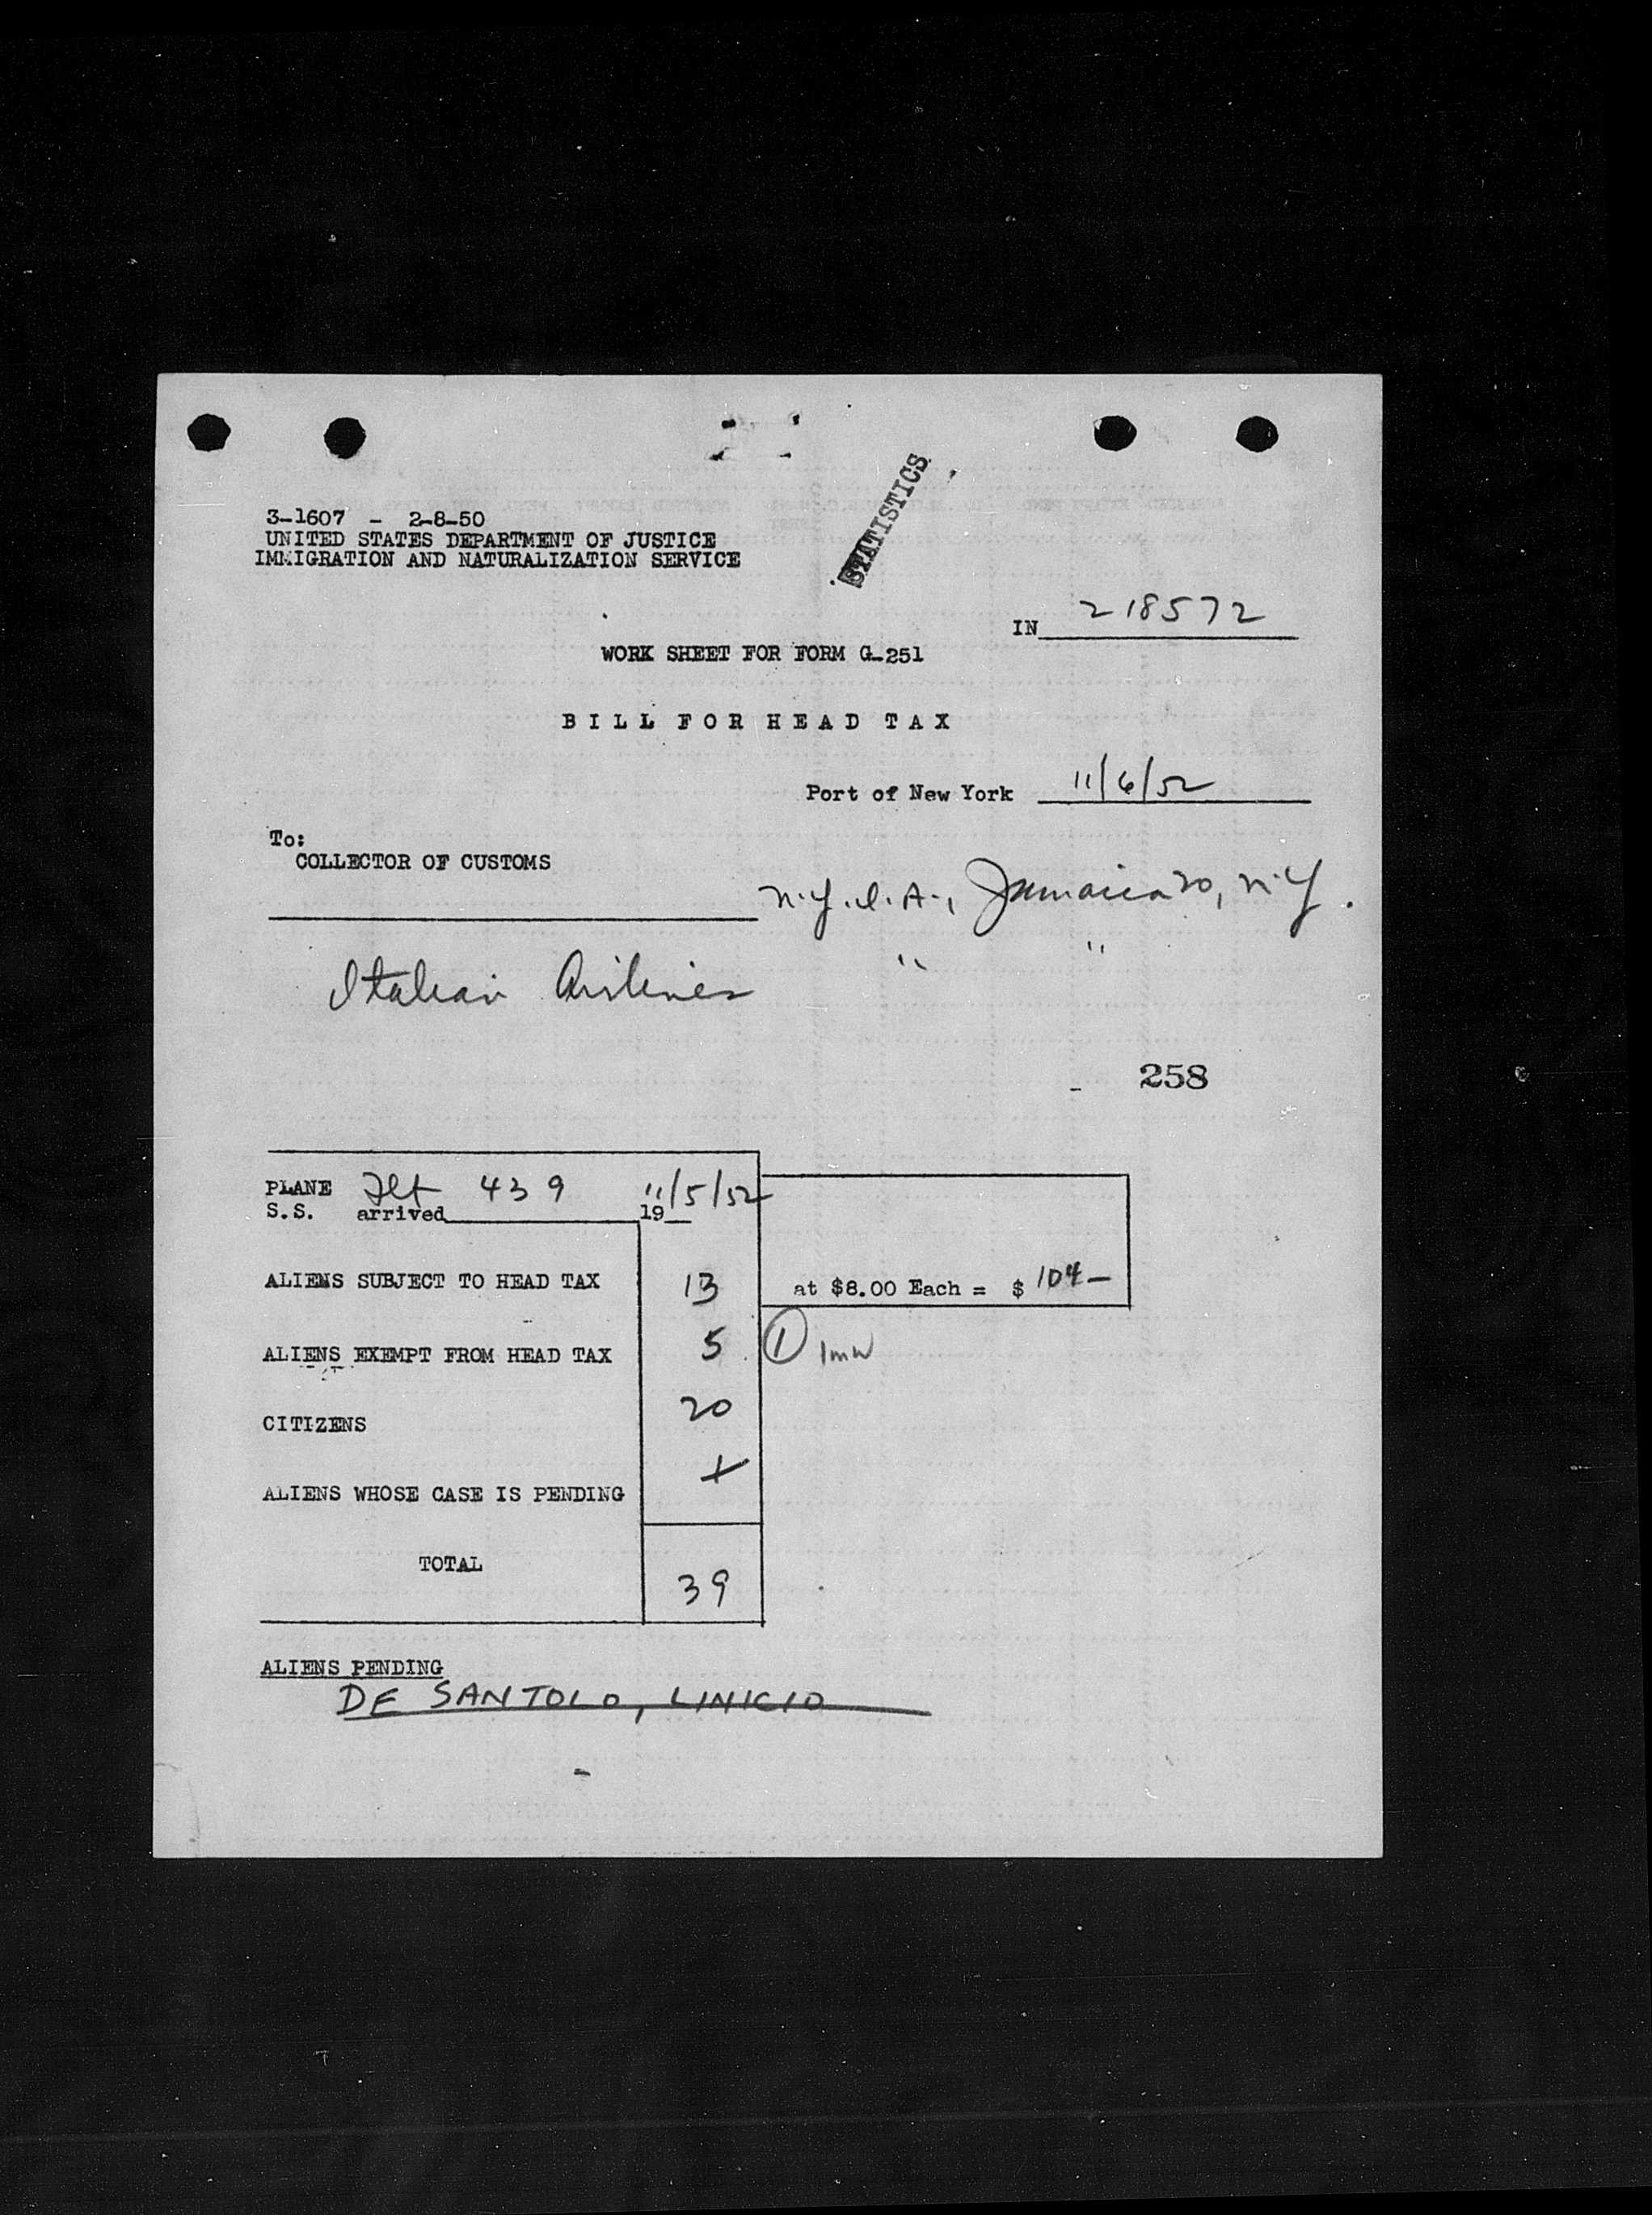 3-1607 - 2-8-50
UNITED STATES DEPARTMENT OF JUSTICE
IMMIGRATION AND NATURALIZATION SERVICE
STATISTICS
IN 218572
WORK SHEET FOR FORM G-251
BILL FOR HEAD TAX
Port of New York 11/6/52
To:
COLLECTOR OF CUSTOMS
N.Y.I.A., Jamaica 20, N.Y.
Italian Airlines " "
258
PLANE Flt 439 11/5/52
S.S. arrived 19
ALIENS SUBJECT TO HEAD TAX 13 at $8.00 Each = $ 104-
ALIENS EXEMPT FROM HEAD TAX 5 1
CITIZENS 20
ALIENS WHOSE CASE IS PENDING
TOTAL 39
ALIENS PENDING
DE SANTOLO, LINICIO